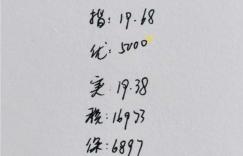 指: 19.68
优: 5000
实: 19.38
税: 16973
保: 6897